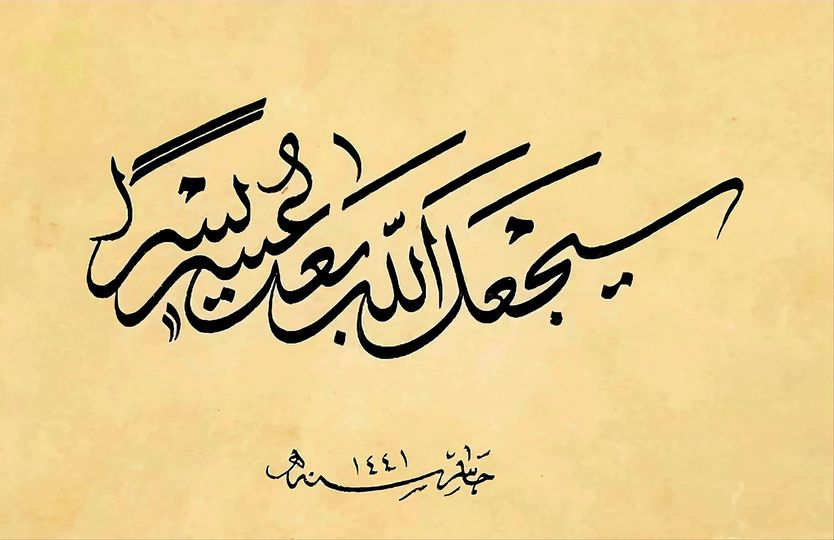 سيجعل الله بعد عسر يسرا
سنة ١٤٤١